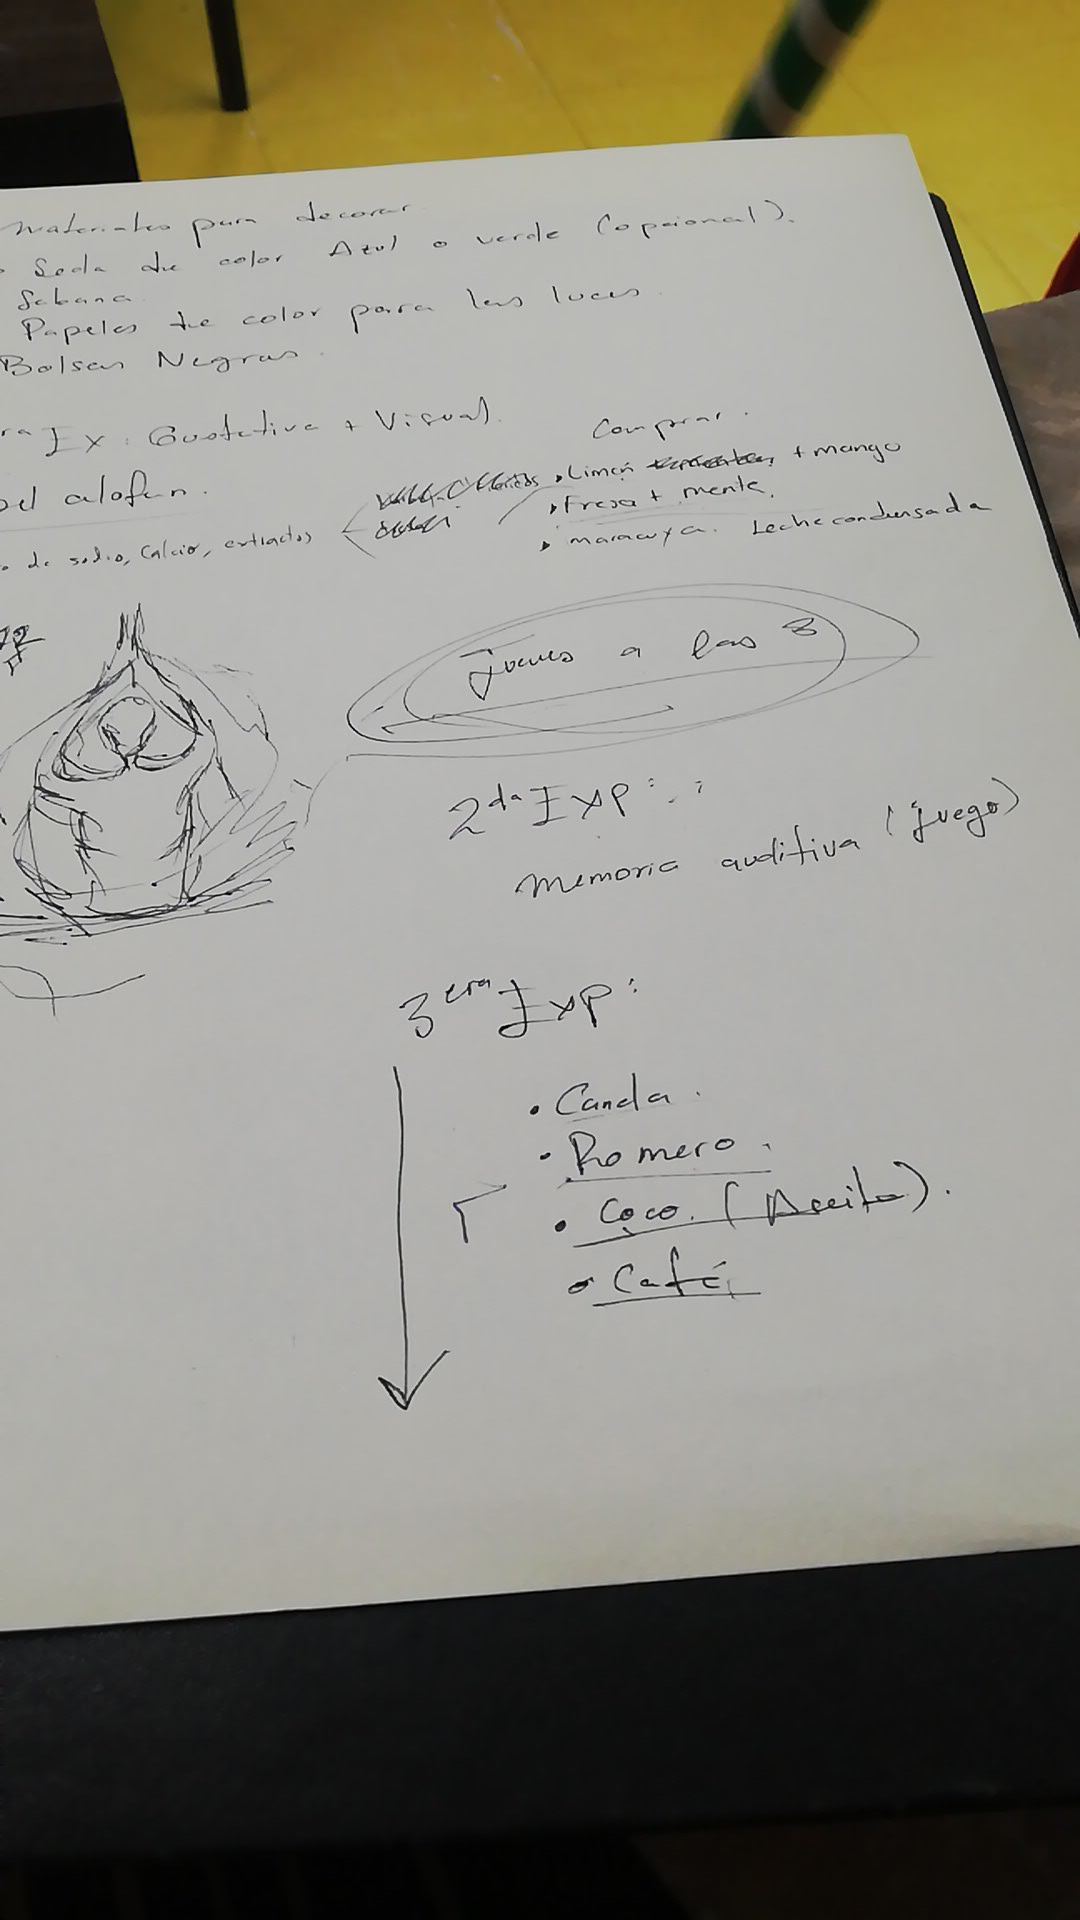 materiales para decorar
Seda de color Azul o verde (opcional).
Sabana
Papeles de color para las luces.
Bolsas Negras.
ra Ex: Gustativa + Visual.
Comprar.
Limón + mango
Fresa + menta.
maracuya. Leche condensada
de sodio, Calcio, extractos
jueves a las 8
2da Exp:
Memoria auditiva (juego)
3era Exp:
• Canela.
• Romero.
• Coco. (Aceite).
• Café.